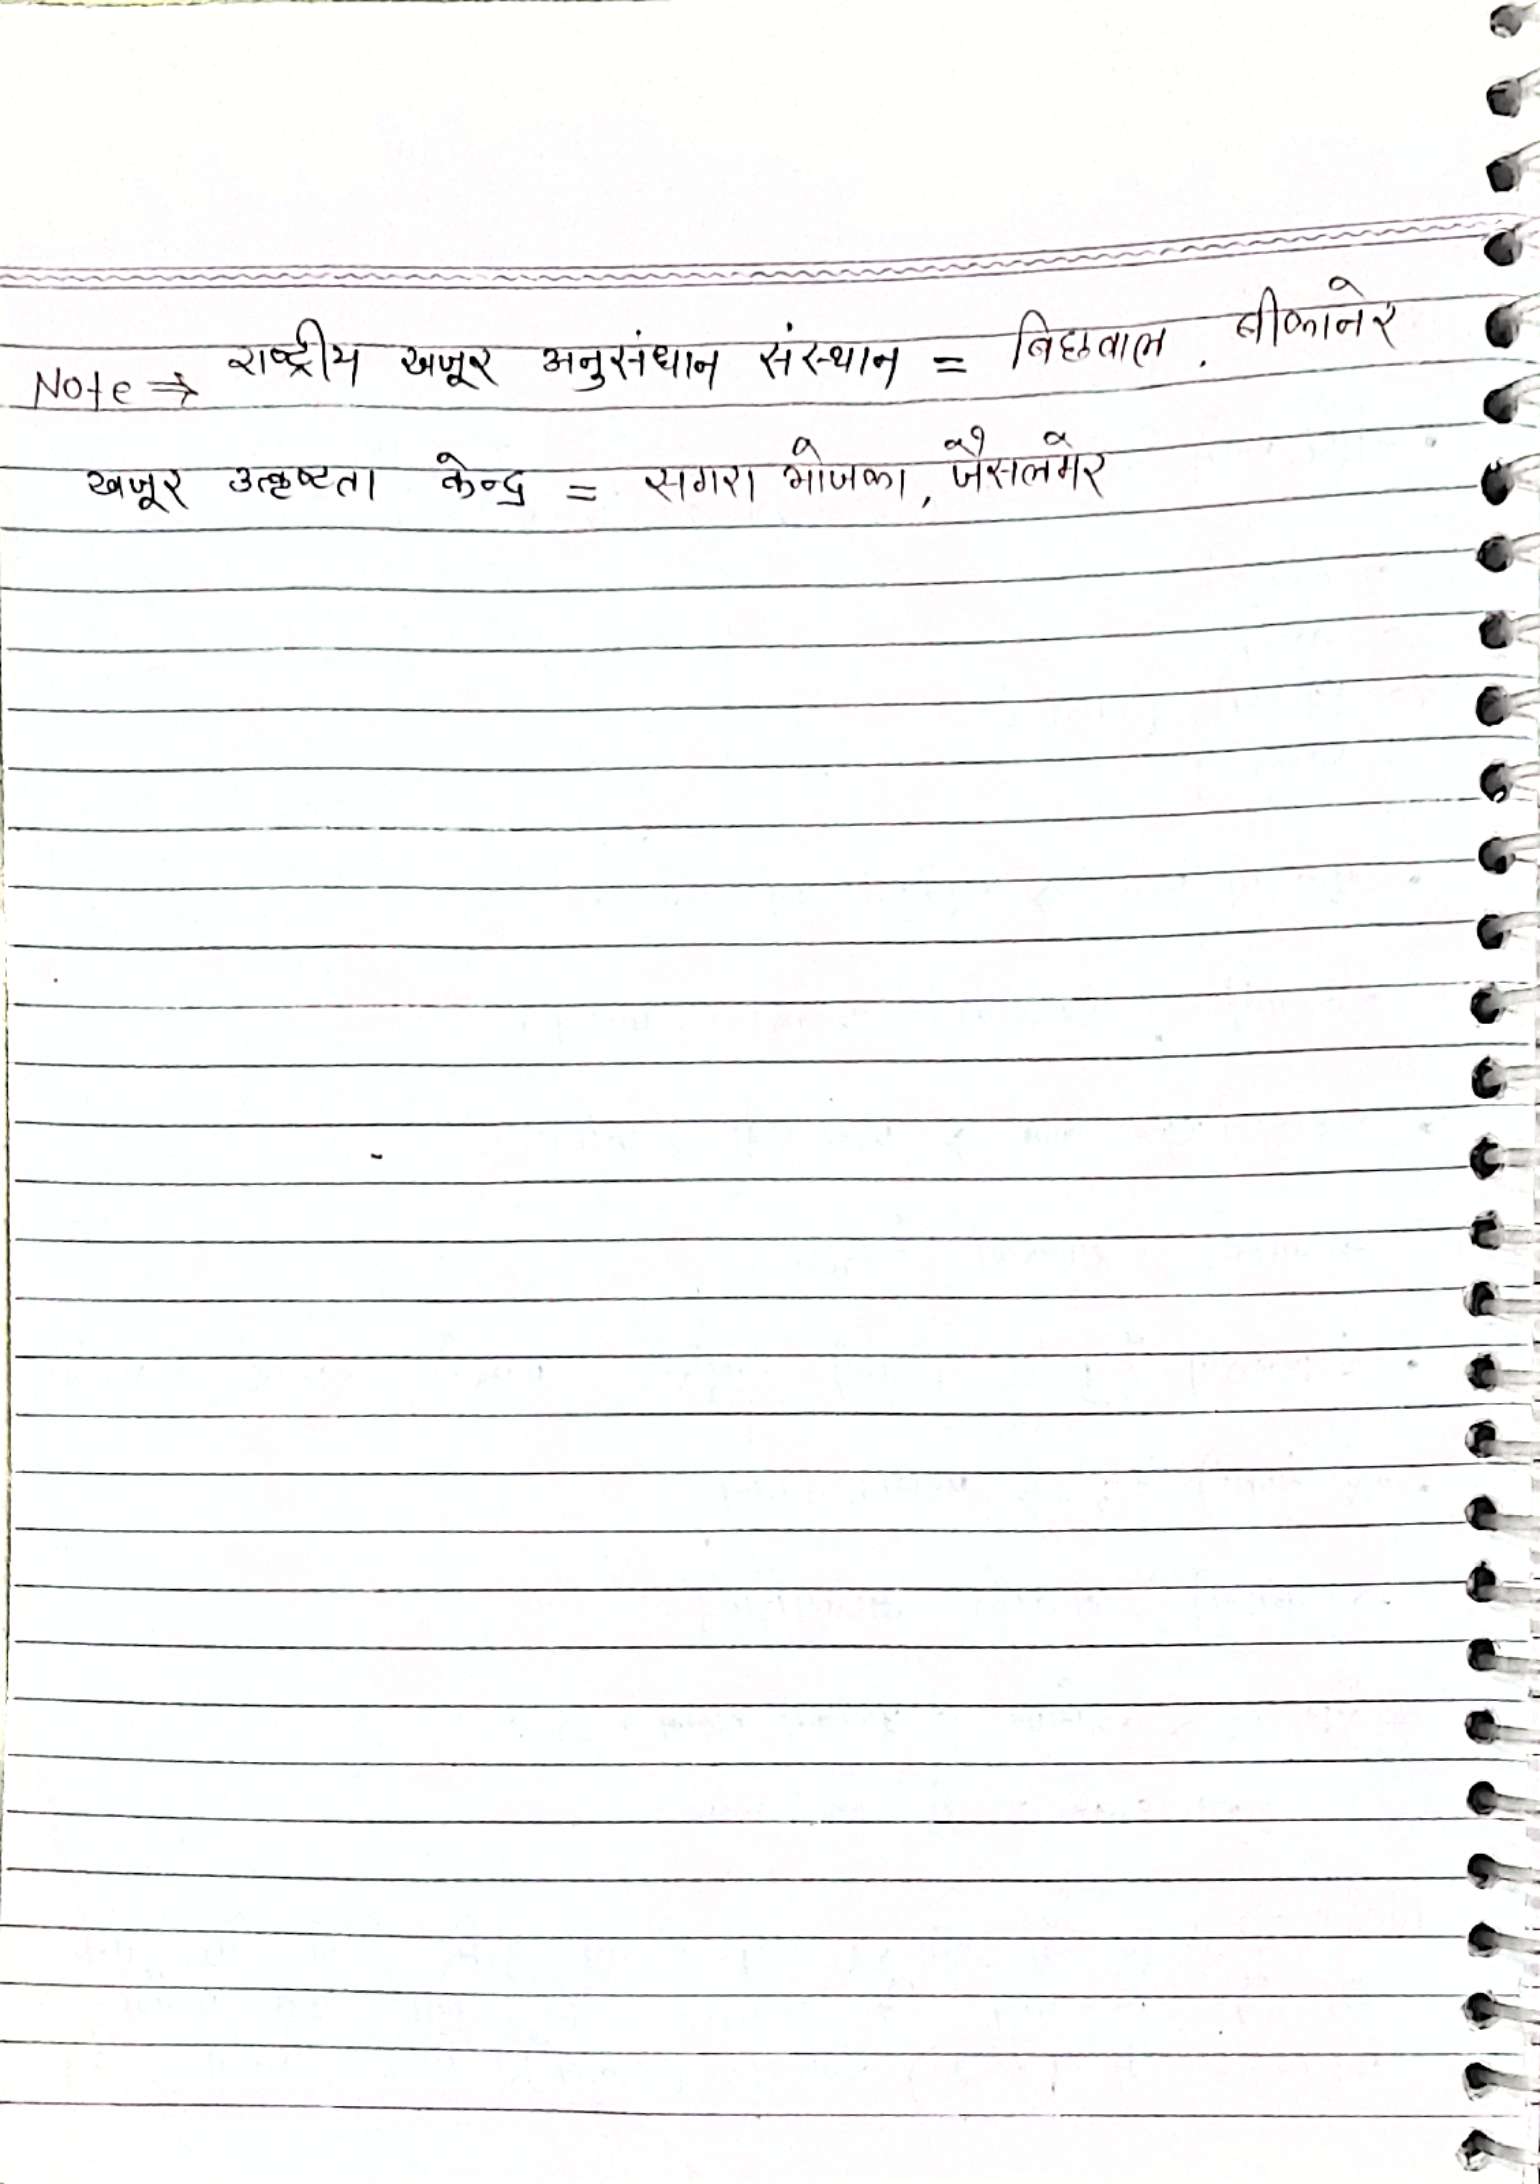 Note ⇒ राष्ट्रीय खजूर अनुसंधान संस्थान = बिछवाल, बीकानेर
खजूर उत्कृष्टता केन्द्र = सगरा भोजका, जैसलमेर